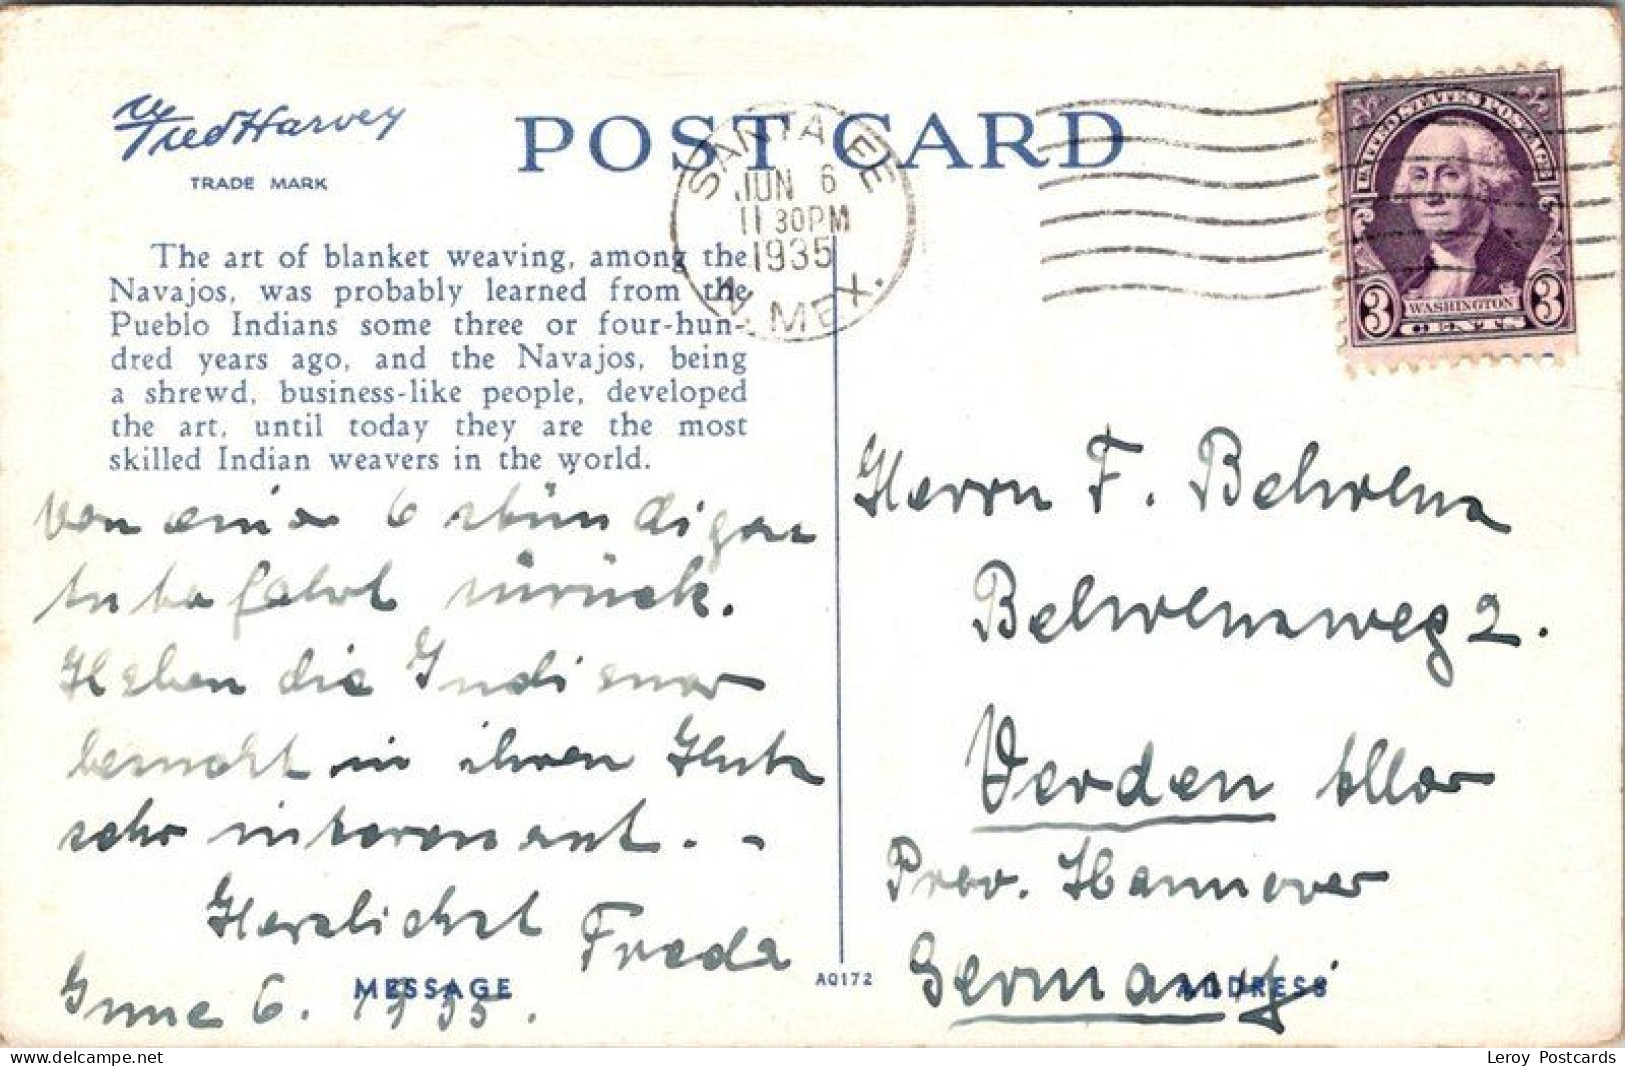 Fred Harvey
TRADE MARK
POST CARD
SANTA FE
JUN 6
11 30PM
1935
N. MEX.
UNITED STATES POSTAGE
3 WASHINGTON 3
CENTS
The art of blanket weaving, among the
Navajos, was probably learned from the
Pueblo Indians some three or four-hun-
dred years ago, and the Navajos, being
a shrewd, business-like people, developed
the art, until today they are the most
skilled Indian weavers in the world.
von einer 6 stündigen
Autofahrt zurück.
Haben die Indianer
besucht in ihren Hütten
sehr interessant. -
Herzlichst Freda
June 6. 1935.
Herrn F. Behrens
Behrensweg 2.
Verden Aller
Prov. Hannover
Germany
MESSAGE
AQ172
ADDRESS
Leroy Postcards